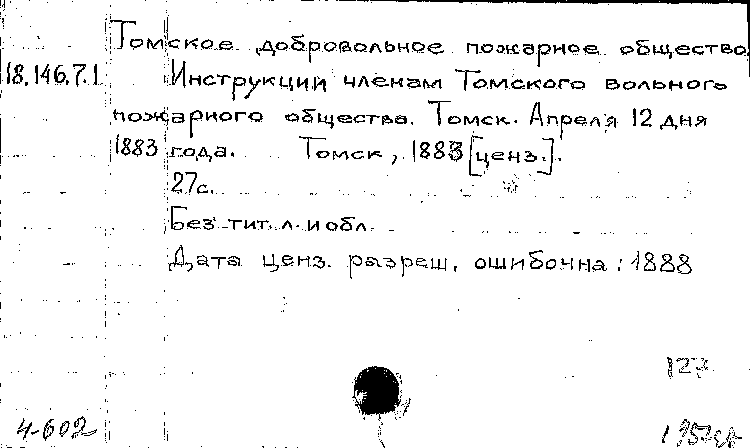 Томское добровольное пожарное общество.
18.146.7.1 Инструкции членам Томского вольного
пожарного общества. Томск. Апреля 12 дня
1883 года. Томск, 1883 [ценз.].
27с.
Без тит. л. и обл.
Дата ценз. разреш. ошибочна: 1888
127
4-602